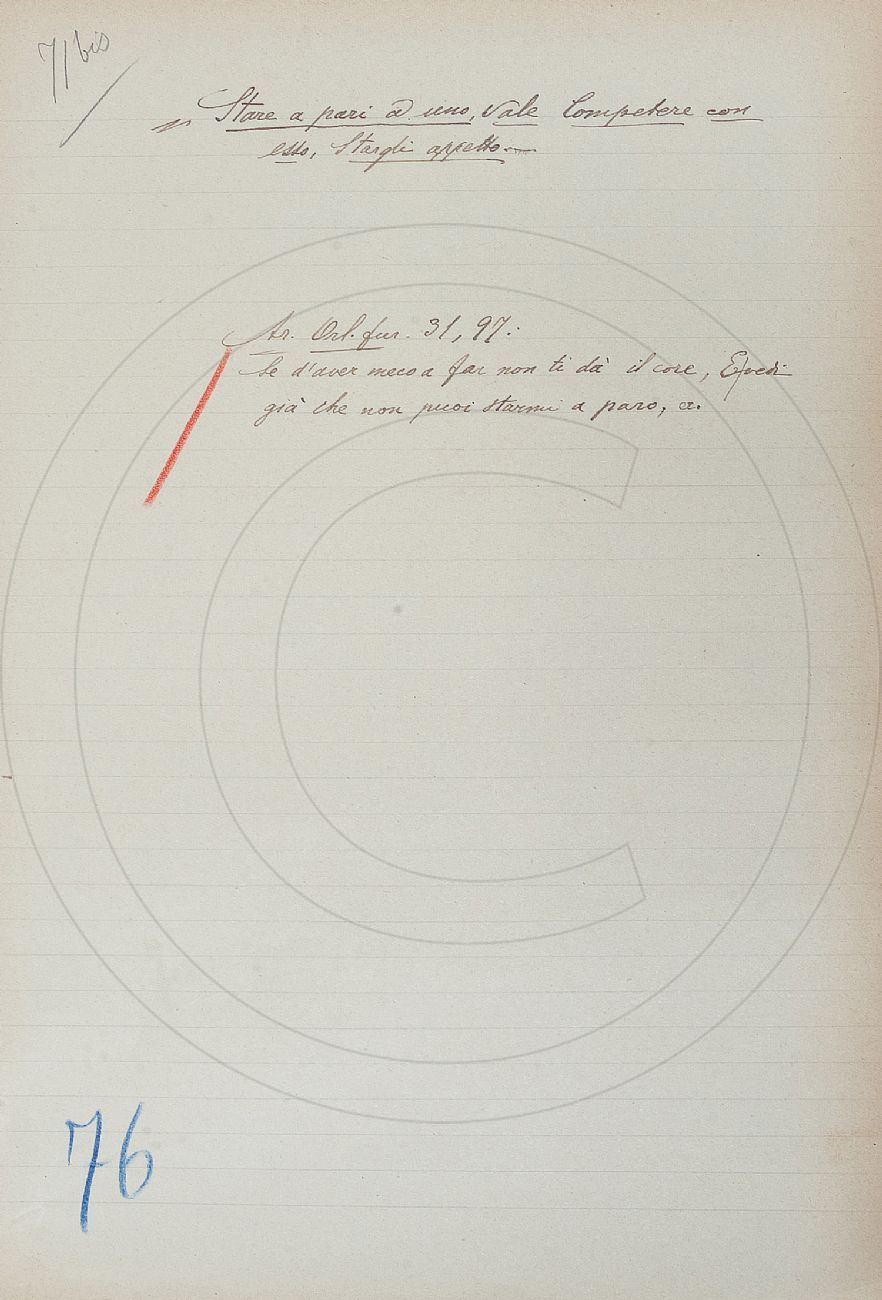 71 bis
Stare a pari ad uno, vale Competere con
esso, Stargli appetto.
Ar. Orl. fur. 31, 97:
Se d'aver meco a far non ti dà il core, E vedi
già che non puoi starmi a paro, ec.
76